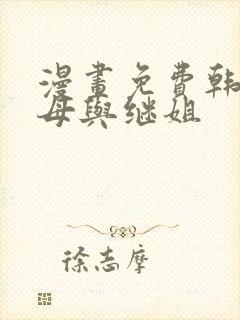 漫畫免費韩
母與继姐
徐志摩